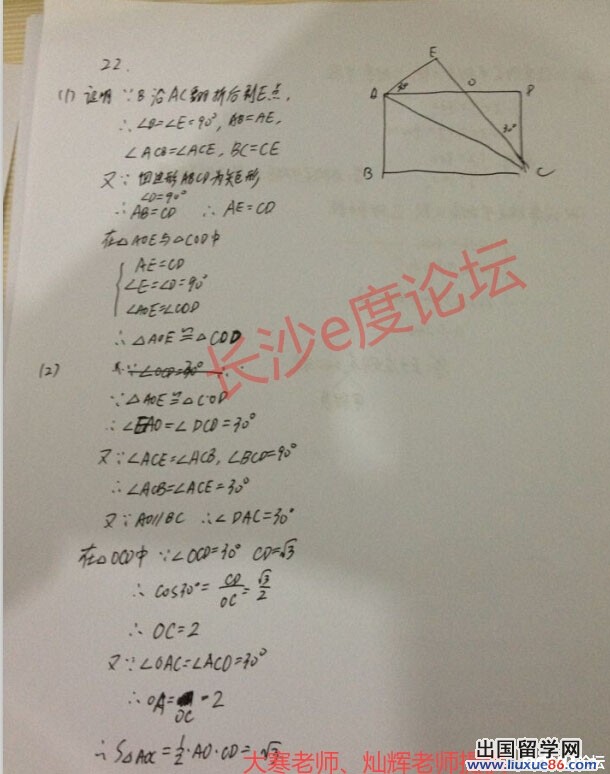 22.
(1) 证明 ∵ B沿AC翻折后到E点,
∴ ∠B=∠E=90°, AB=AE,
∠ACB=∠ACE, BC=CE
又∵ 四边形ABCD为矩形
∠D=90°
∴ AB=CD ∴ AE=CD
在△AOE与△COD中
AE=CD
∠E=∠D=90°
∠AOE=∠COD
∴ △AOE≌△COD
(2) ∵ ∠OCD=30°
∵ △AOE≌△COD
∴ ∠EAO=∠DCD=30°
又∵ ∠ACE=∠ACB, ∠BCD=90°
∴ ∠ACB=∠ACE=30°
又∵ AD//BC ∴ ∠DAC=30°
在△OCD中 ∵ ∠OCD=30° CD=√3
∴ cos30°= CD/OC = √3/2
∴ OC=2
又∵ ∠OAC=∠ACO=30°
∴ OA=OC=2
∴ S△AOC=1/2·AO·CD=√3
E
A
O
D
30°
30°
B
C
长沙e度论坛
大寒老师、灿辉老师
出国留学网
www.liuxue86.com